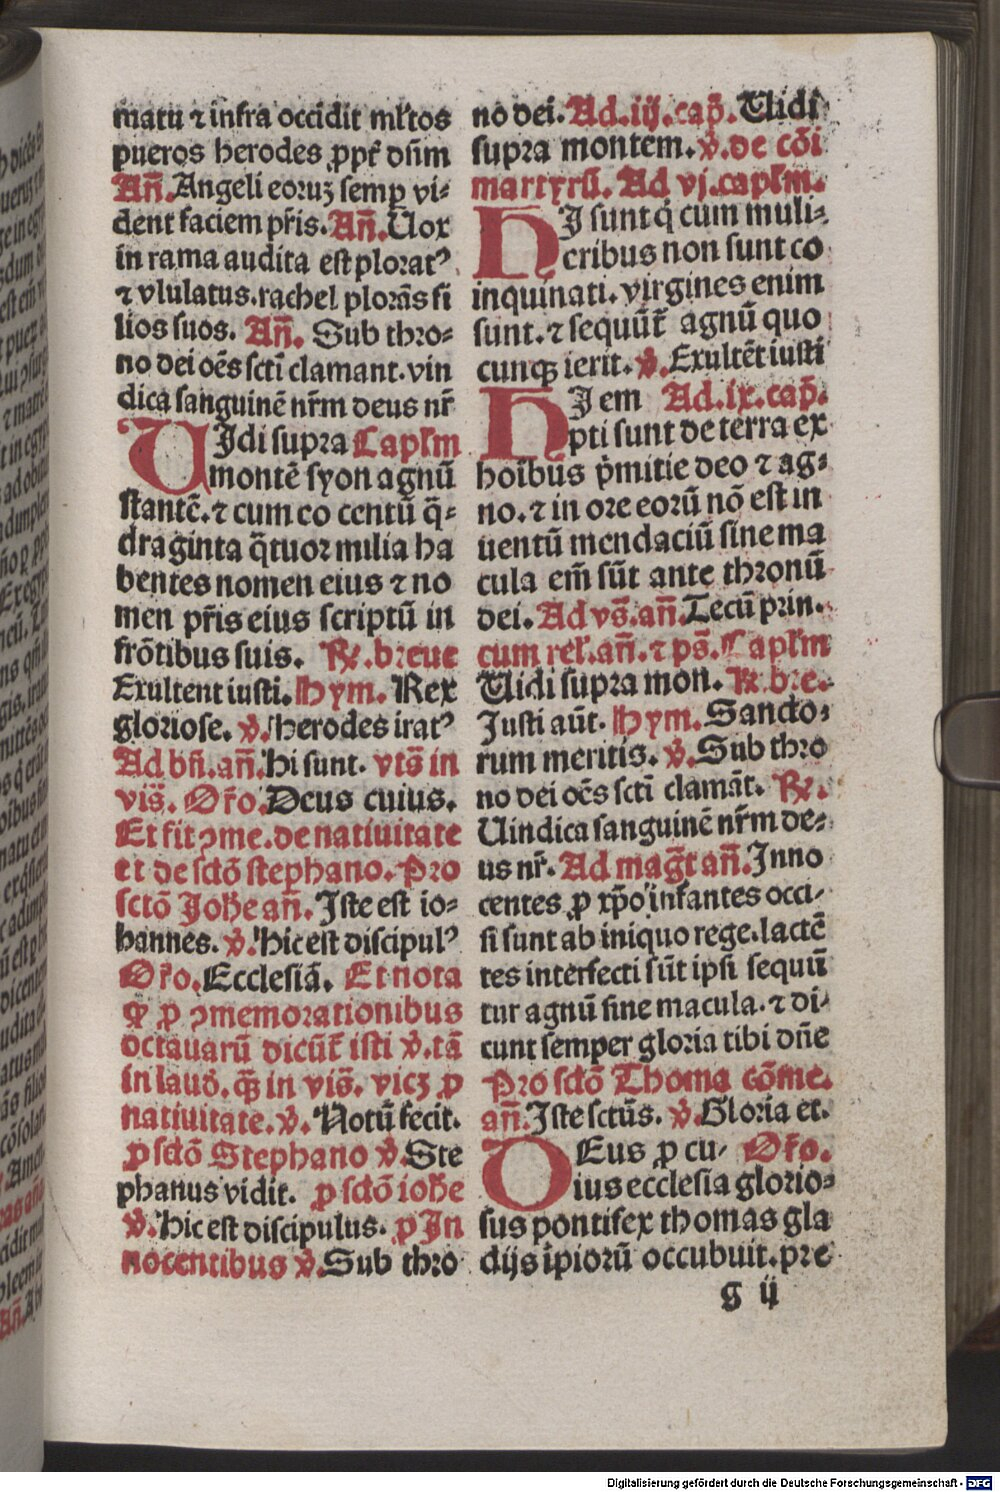 matu ⁊ infra occidit ml̓tos
pueros herodes ꝓpt̓ dn̄m
An̄. Angeli eoruꝫ semꝑ vi-
dent faciem pr̄is. An̄. Uox
in rama audita est ploratꝰ
⁊ vlulatus. rachel plorās fi
lios suos. An̄. Sub thro-
no dei oēs sctī clamant. vin
dica sanguinē nr̄m deus nr̄
UIdi supra Capl̓m
montē syon agnū
stantē. ⁊ cum eo centū q̄-
draginta q̄tuor milia ha
bentes nomen eius ⁊ no
men pr̄is eius scriptū in
frōtibus suis. ℟. breue
Exultent iusti. Hym. Rex
gloriose. ℣. Herodes iratꝰ
Ad bn̄. an̄. Hi sunt. vts̄ in
vis̄. Or̄o. Deus cuius.
Et fit ꝯme. de natiuitate
et de sctō stephano. Pro
sctō Johe an̄. Iste est io-
hannes. ℣. Hic est discipulꝰ
Or̄o. Ecclesiā. Et nota
ꝙ ꝓ ꝯmemorationibus
octauarū dicūt̄ isti ℣. tā
in laud̓. qꝫ̄ in vis̄. vicꝫ ꝓ
natiuitate. ℣. Notū fecit.
ꝓ sctō Stephano ℣. Ste
phanus vidit. ꝓ sctō iohe
℣. Hic est discipulus. ꝓ In
nocentibus ℣. Sub thro
no dei. Ad. iij. cap̄. Uidi
supra montem. ℣. de cōi
martyrū. Ad vj. capl̓m.
HI sunt q̇ cum muli-
eribus non sunt co
inquinati. virgines enim
sunt. ⁊ sequūt̄ agnū quo
cunqꝫ ierit. ℣. Exultēt iusti
HI em Ad. ix. cap̄.
pti sunt de terra ex
hoībus p̄mitie deo ⁊ ag-
no. ⁊ in ore eorū nō est in
uentū mendaciū sine ma
cula em̄ sūt ante thronū
dei. Ad vs̄. an̄. Tecū prin.
cum rel̓. an̄. ⁊ ps̄. Capl̓m
Uidi supra mon. ℟. bre.
Justi aūt. Hym. Sancto-
rum meritis. ℣. Sub thro
no dei oēs sctī clamāt. ℟.
Uindica sanguinē nr̄m de-
us nr̄. Ad mag̅t an̄. Inno
centes ꝓ xp̄o infantes occi-
si sunt ab iniquo rege. lactē
tes interfecti sūt ipsi sequū
tur agnū sine macula. ⁊ di-
cunt semper gloria tibi dn̄e
Pro sctō Thoma cōme.
an̄. Iste sctūs. ℣. Gloria et.
DEus ꝓ cu- Or̄o.
ius ecclesia glorio-
sus pontifex thomas gla
dijs īpiorū occubuit. pre
g ij
Digitalisierung gefördert durch die Deutsche Forschungsgemeinschaft - DFG